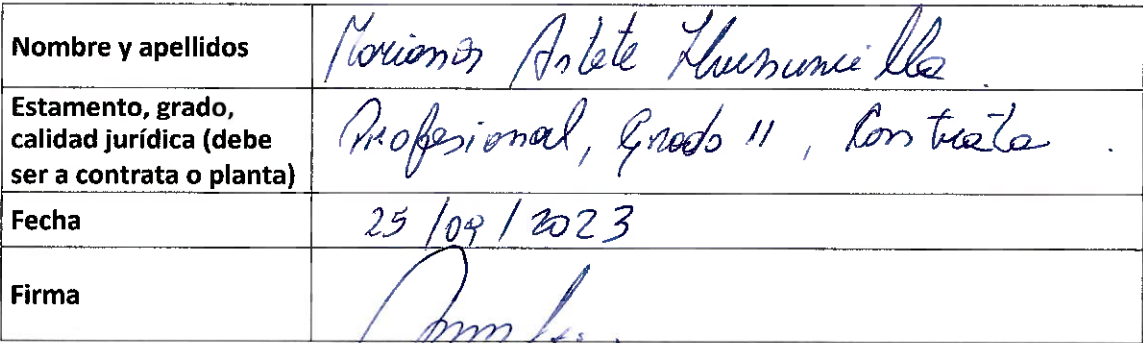 Nombre y apellidos
Astete
Estamento, grado,
calidad jurídica (debe
ser a contrata o planta)
Profesional, Grado 11, Contrata.
Fecha
25/09/2023
Firma